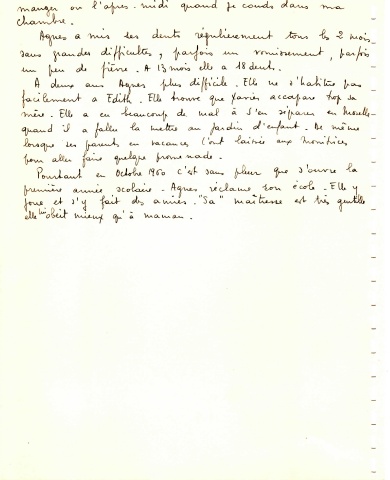 manger ou l'après-midi quand je couds dans ma
chambre.
Agnès a mis ses dents régulièrement tous les 2 mois
sans grandes difficultés, parfois un vomissement, parfois
un peu de fièvre. A 13 mois elle a 18 dents.
A deux ans Agnès plus difficile. Elle ne s'habitue pas
facilement à Edith. Elle trouve que Xavier accapare trop sa
mère. Elle a eu beaucoup de mal à s'en séparer en
quand il a fallu la mettre au jardin d'enfant. De même
lorsque ses parents en vacances l'ont laissée aux monitrices
pour aller faire quelque promenade.
Pourtant en Octobre 1960 c'est sans pleur que s'ouvre la
première année scolaire. Agnès réclame son école. Elle y
joue et s'y fait des amies. "Sa" maîtresse est très gentille
elle lui obéit mieux qu'à maman.